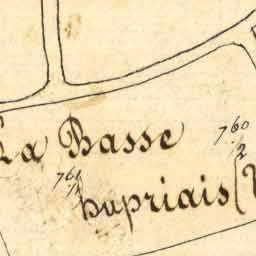 La Basse
760
1/2
761
1/2
hupriais